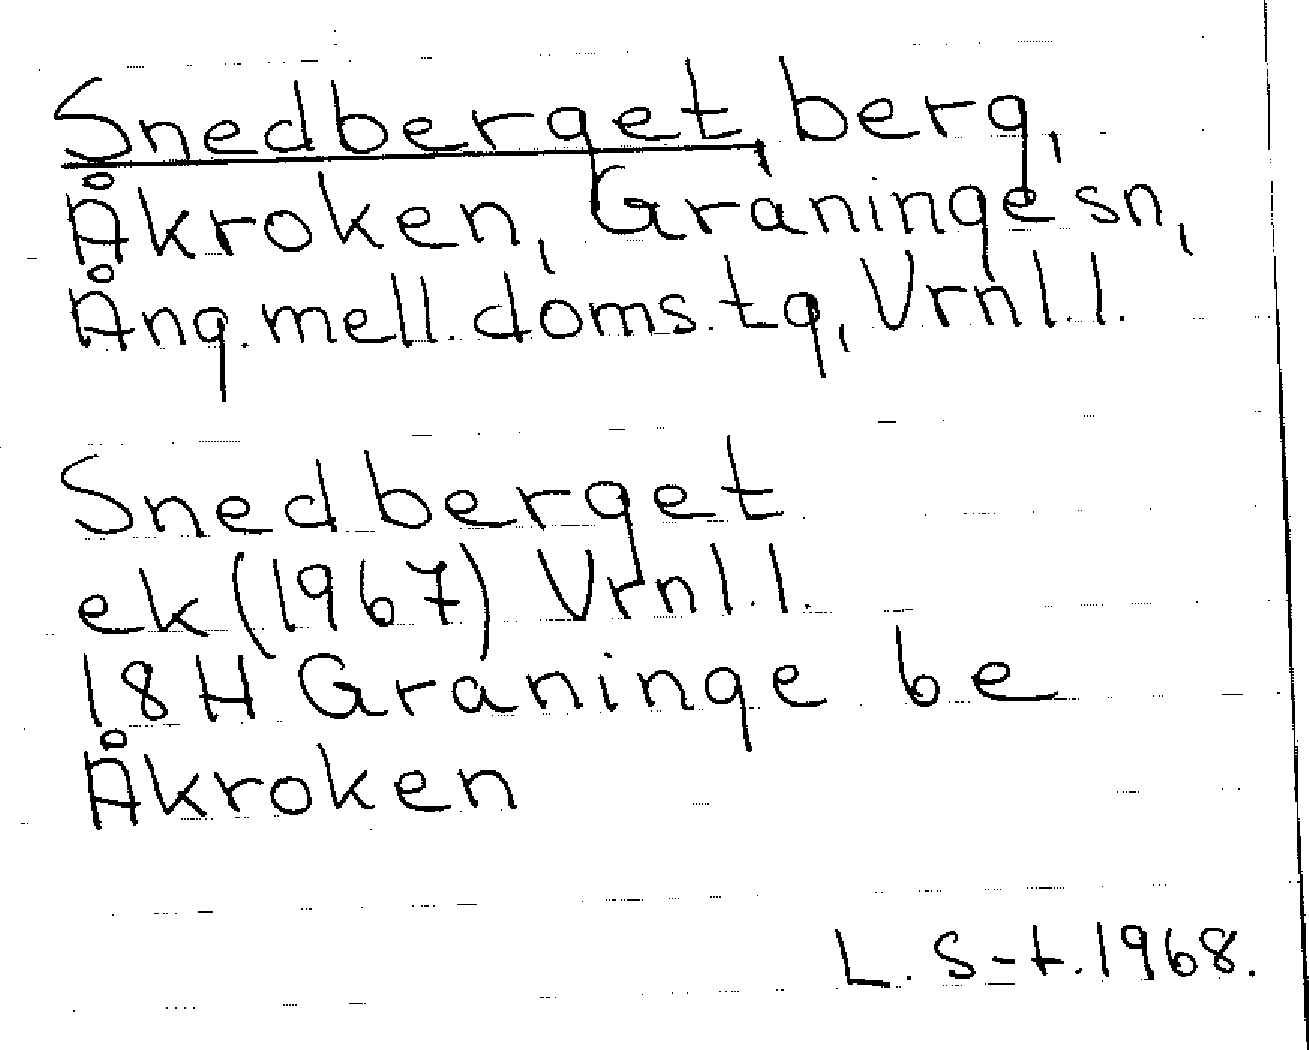 Snedberget, berg,
Åkroken, Graninge sn,
Ång. mell. doms. tg, Vrnl.l.
Snedberget
ek (1967) Vrnl.l.
18H Graninge be
Åkroken
L. S-t. 1968.